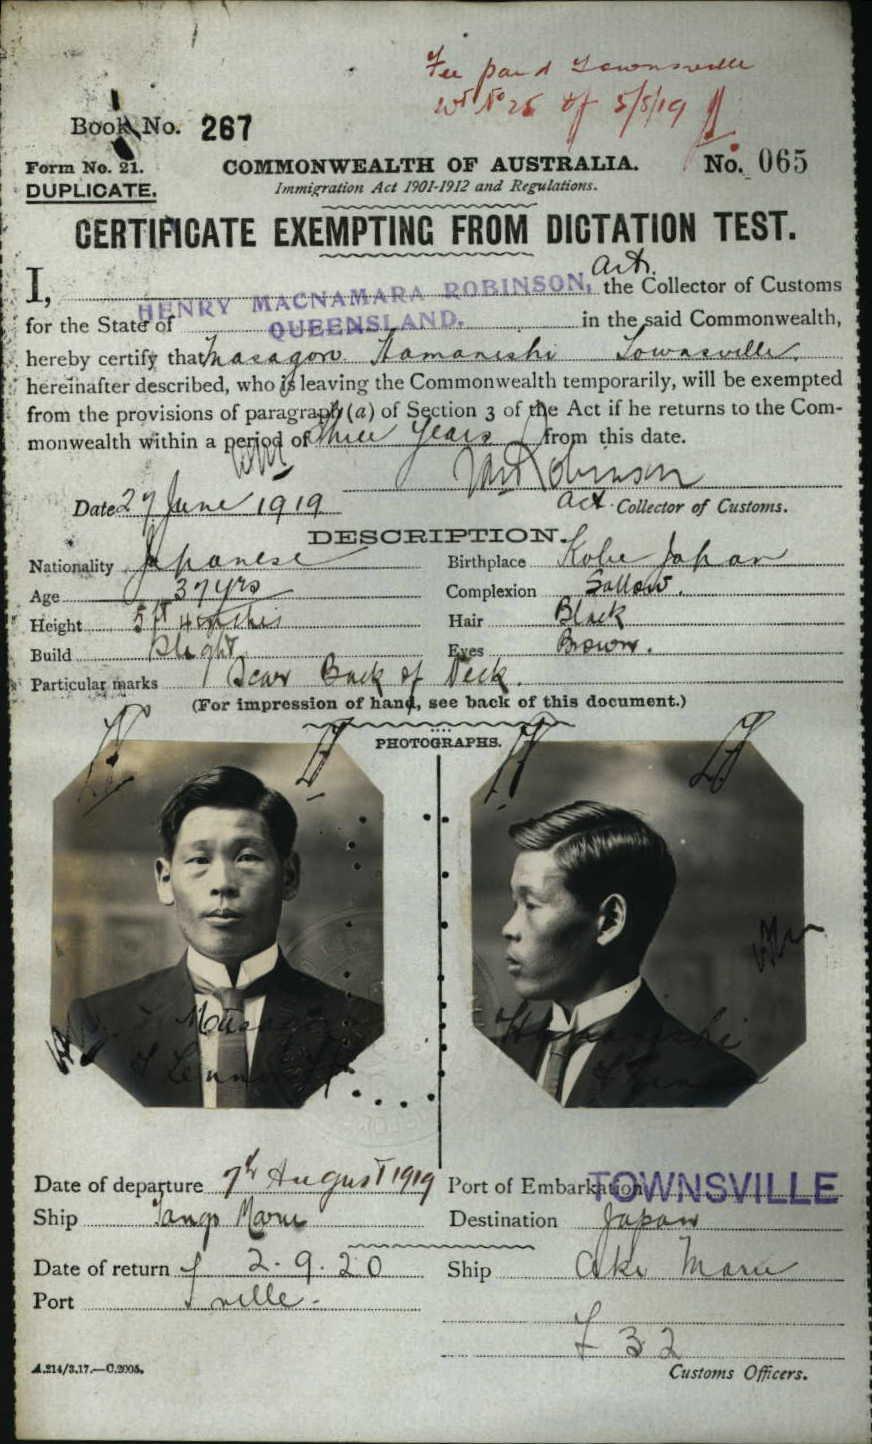 Fee paid Townsville
No 26 of 5/8/19
Book No. 267
Form No. 21.
COMMONWEALTH OF AUSTRALIA.
No. 065
DUPLICATE.
Immigration Act 1901-1912 and Regulations.
CERTIFICATE EXEMPTING FROM DICTATION TEST.
I, HENRY MACNAMARA ROBINSON, Actg. the Collector of Customs
for the State of QUEENSLAND. in the said Commonwealth,
hereby certify that Masagoro Hamanishi Townsville
hereinafter described, who is leaving the Commonwealth temporarily, will be exempted
from the provisions of paragraph (a) of Section 3 of the Act if he returns to the Com-
monwealth within a period of three years from this date.
HM Robinson
Date 27 June 1919
Act. Collector of Customs.
DESCRIPTION.
Nationality Japanese
Birthplace Kobe Japan
Age 37 yrs
Complexion Sallow.
Height 5 ft 4 inches
Hair Black
Build Slight
Eyes Brown.
Particular marks Scar Back of Neck.
(For impression of hand, see back of this document.)
PHOTOGRAPHS.
Date of departure 7th August 1919
Port of Embarkation TOWNSVILLE
Ship Tango Maru
Destination Japan
Date of return 2.9.20
Ship Aki Maru
Port T'ville
32
A.214/3.17.—C.2005.
Customs Officers.